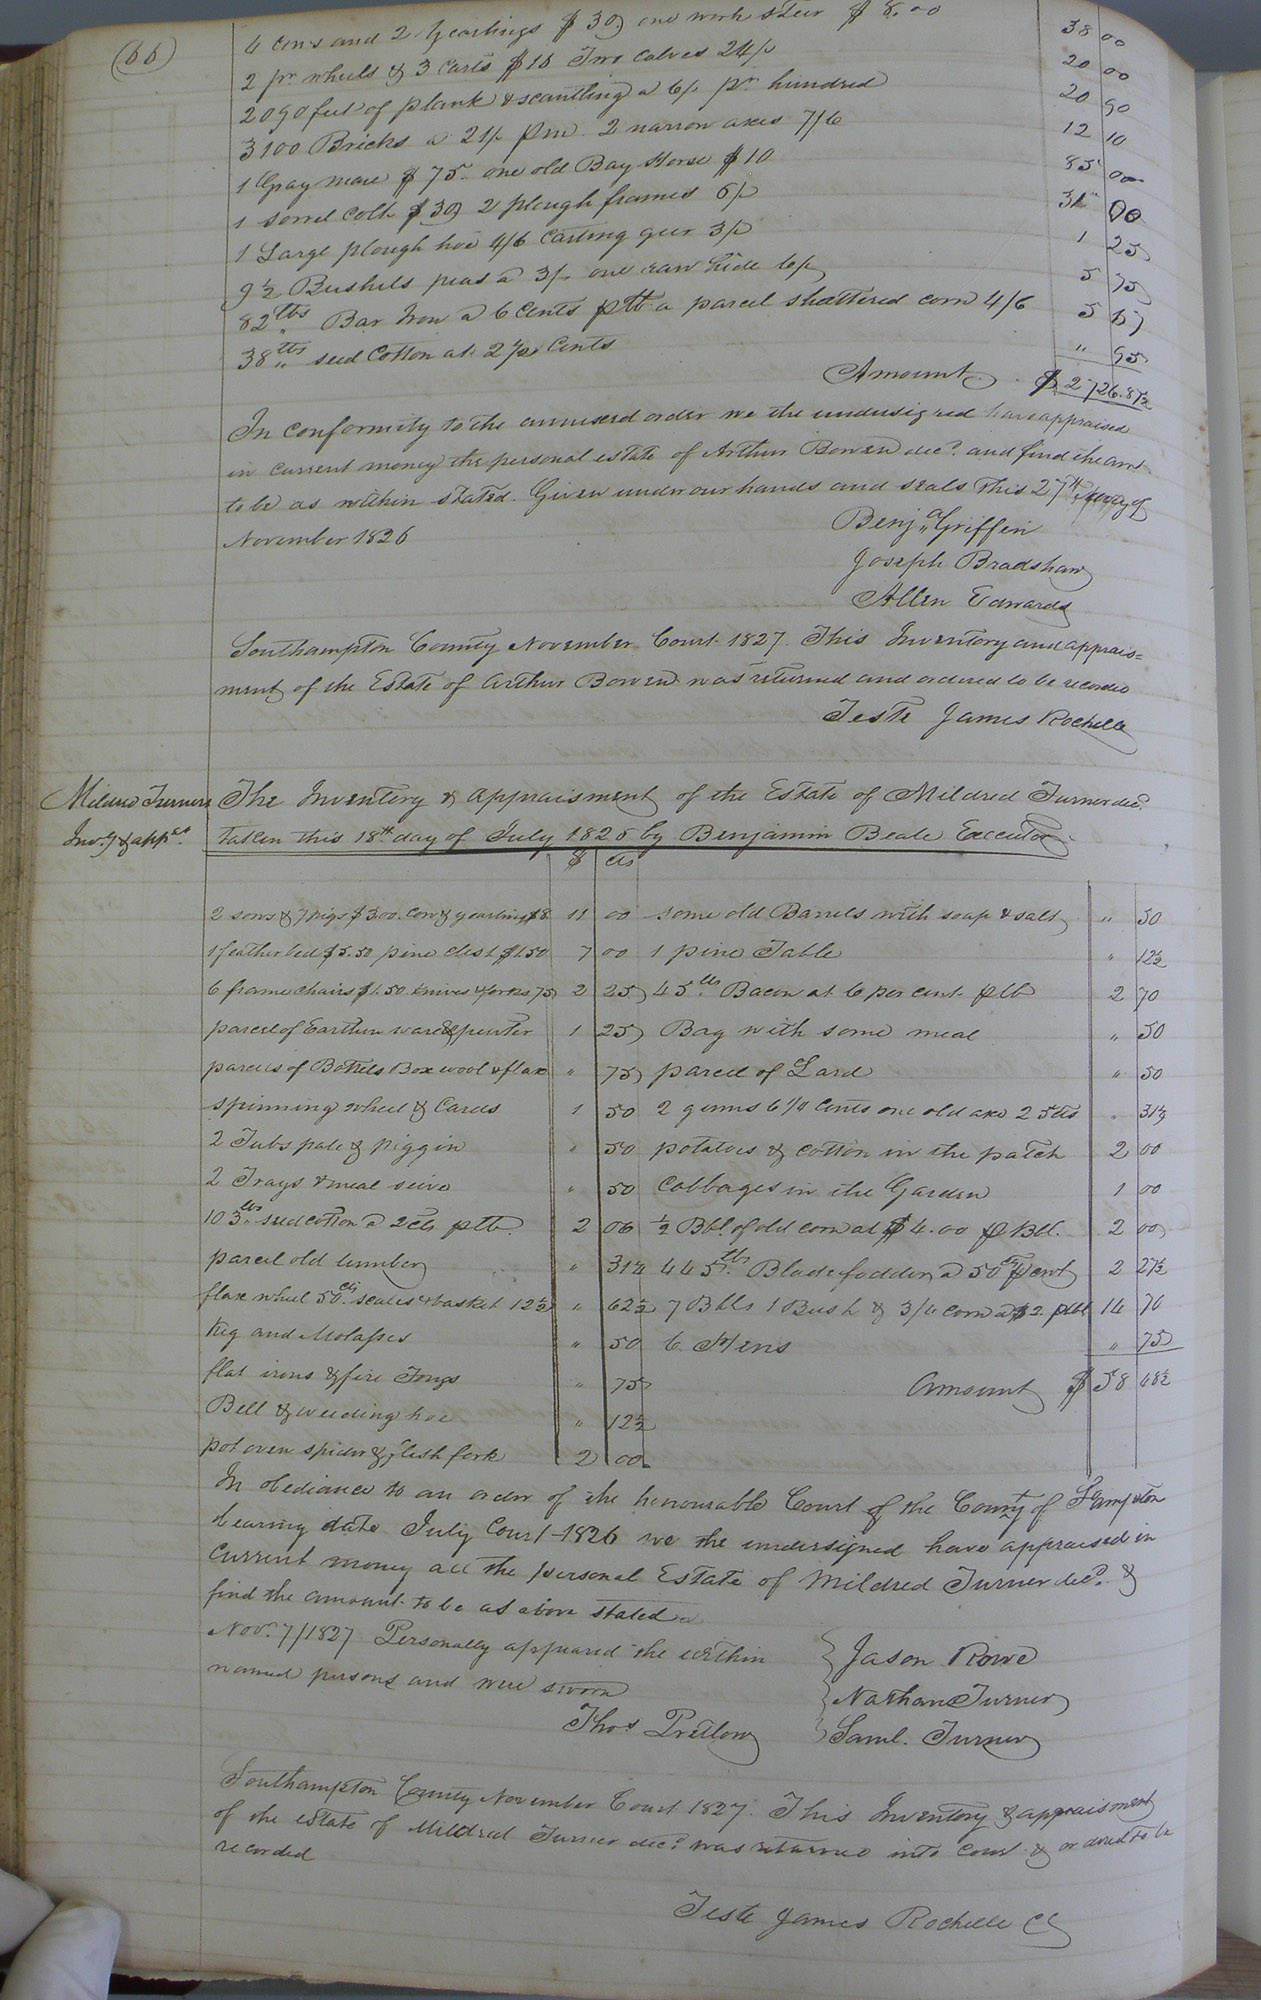 (66)
4 cows and 2 Yearlings $30, one work steer $8.00 38 00
2 pr wheels & 3 carts $16 Two calves 24/ 20 00
2090 feet of plank & scantling a 6/ pr hundred 20 90
3100 Bricks a 21/ pm. 2 narrow axes 7/6 12 10
1 Gray mare $75. one old Bay Horse $10 85 00
1 sorrel colt $30, 2 plough frames 6/ 31 00
1 Large plough hoe 4/6 Carting geer 3/ 1 25
9 1/2 Bushels peas a 3/. one raw hide 6/ 5 75
82 lbs Bar Iron a 6 Cents p lb a parcel shattered corn 4/6 5 67
38 lbs seed Cotton at 2 1/2 Cents " 95
Amount $ 2726.87 1/2
In conformity to the annexed order we the undersigned have appraised
in current money the personal estate of Arthur Bowen decd. and find the amt
to be as within stated. Given under our hands and seals this 27th day of
November 1826
Benja Griffin
Joseph Bradshaw
Allen Edwards
Southampton County November Court 1827. This Inventory and apprais=
ment of the Estate of Arthur Bowen was returned and ordered to be recorded
Teste James Rochelle
Mildred Turners The Inventory & appraisment of the Estate of Mildred Turner decd.
Invy & appt. taken this 18th day of July 1826 by Benjamin Beale Executor
$ cts
2 sows & 7 pigs $3.00. Cow & yearling $8 11 00 some old Barrels with soap & salt " 50
1 feather bed $5.50 pine chest $1.50 7 00 1 pine Table " 12 1/2
6 frame chairs $1.50 knives & forks 75 2 25 45 lbs Bacon at 6 per cent p lb 2 70
parcel of Earthen ware & pewter 1 25 Bag with some meal " 50
parcels of Bottels Box wool & flax " 75 parcel of Lard " 50
spinning wheel & Cards 1 50 2 gums 6 1/4 cents one old axe 25 cts " 31 1/4
2 Tubs pale & piggin " 50 potatoes & cotton in the patch 2 00
2 Trays & meal seive " 50 Cabbages in the Garden 1 00
103 lbs seed cotton a 2 cts p lb 2 06 1/2 Bbl. of old corn at $4.00 p Bbl. 2 00
parcel old lumber " 31 1/4 445 lbs Blade fodder a 50 cts p cwt 2 27 1/2
flax wheel 50 cts. scales & basket 12 1/2 " 62 1/2 7 Bbls 1 Bush & 3/4 corn a $2. pbbl 14 70
Keg and Molasses " 50 6 Hens " 75
flat irons & fire Tongs " 75 Amount $ 58 48 1/2
Bell & weeding hoe " 12 1/2
pot oven spider & flesh fork 2 00
In obediance to an order of the honourable Court of the County of S°ampton
bearing date July Court 1826 we the undersigned have appraised in
Current money all the personal Estate of Mildred Turner decd. &
find the amount to be as above stated
Nov. 7/1827 Personally appeared the within Jason Rowe
named persons and were sworn Nathan Turner
Thos Pretlow Saml. Turner
Southampton County November Court 1827. This Inventory & appraisment
of the estate of Mildred Turner decd. was returned into Court & ordered to be
recorded
Teste James Rochelle CC